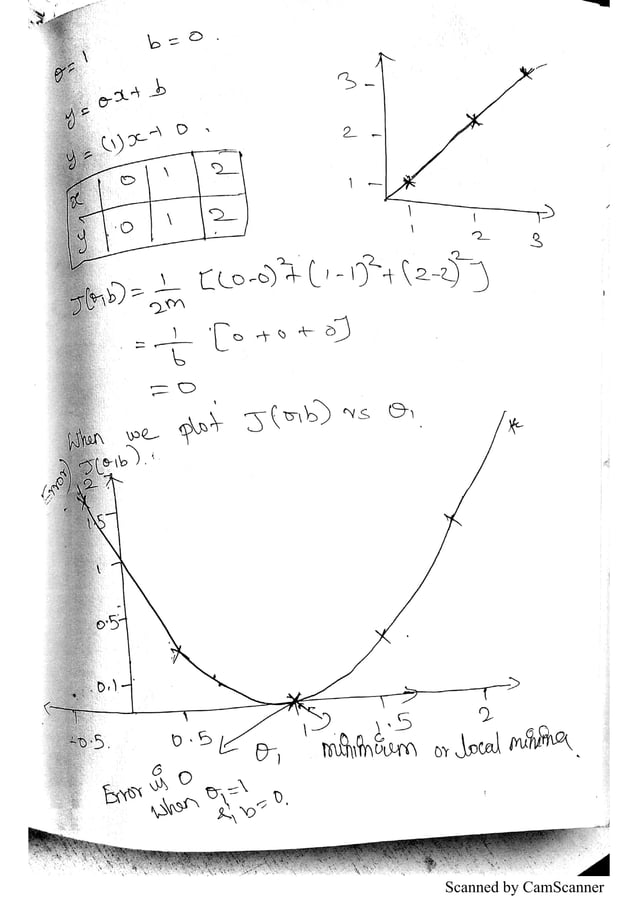 θ=1 b=0.
y=θx+b
3
y=(1)x+0.
2
x 0 1 2
1
y 0 1 2
1 2 3
J(θ,b)=1/2m [(0-0)²+(1-1)²+(2-2)²]
=1/6 [0+0+0]
=0
When we plot J(θ,b) vs θ,
Error) J(θ,b).
2
1.5
1
0.5
0.1
-0.5. 0.5 1 1.5 2
θ, minimaem or local minima.
Error is 0
when θ,=1
&, b=0.
Scanned by CamScanner